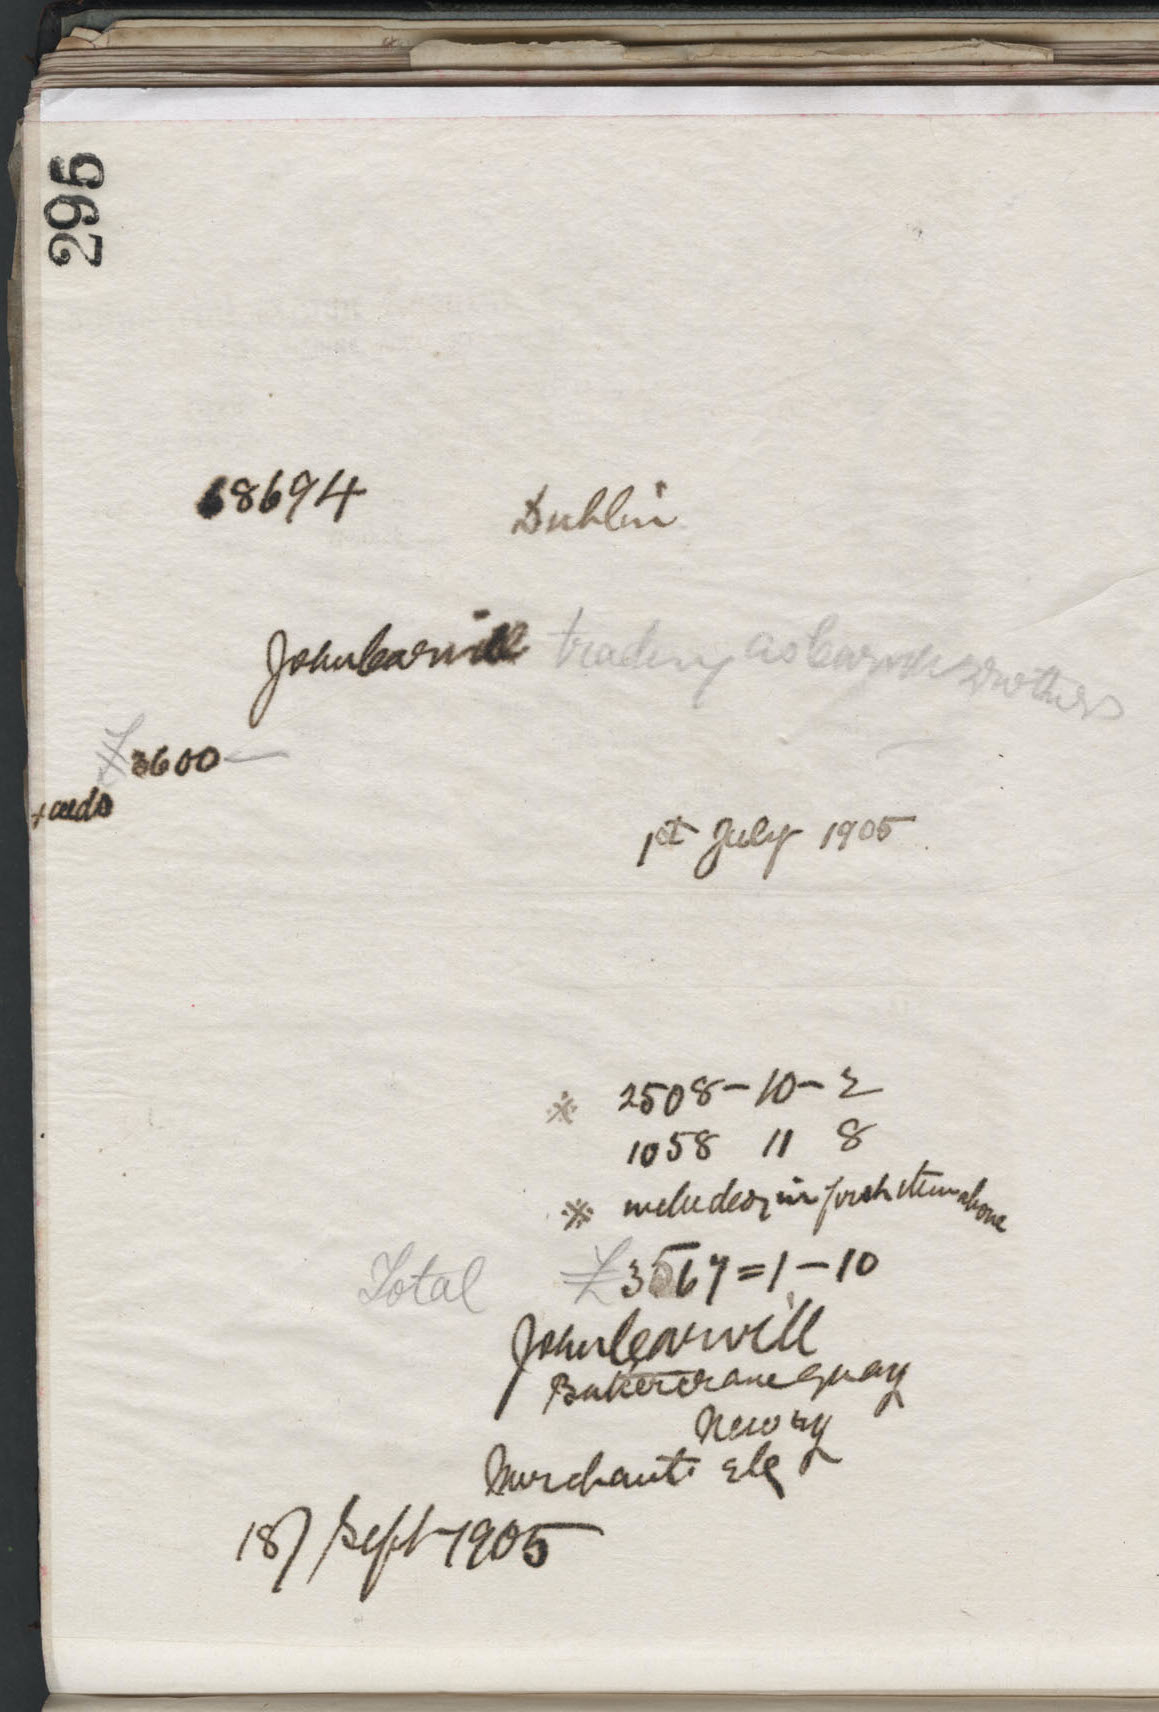 295
68694
Dublin
John Carvill trading as Carvill Brothers
£3600
1st July 1905
※ 2508-10-2
1058 11 8
※ included in first item above
Total £3567=1-10
John Carvill
Buttercrane Quay
Newry
Merchant etc
18/ Sept 1905